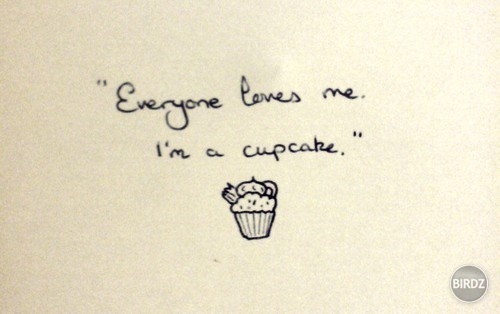 "Everyone loves me.
I'm a cupcake."
BIRDZ